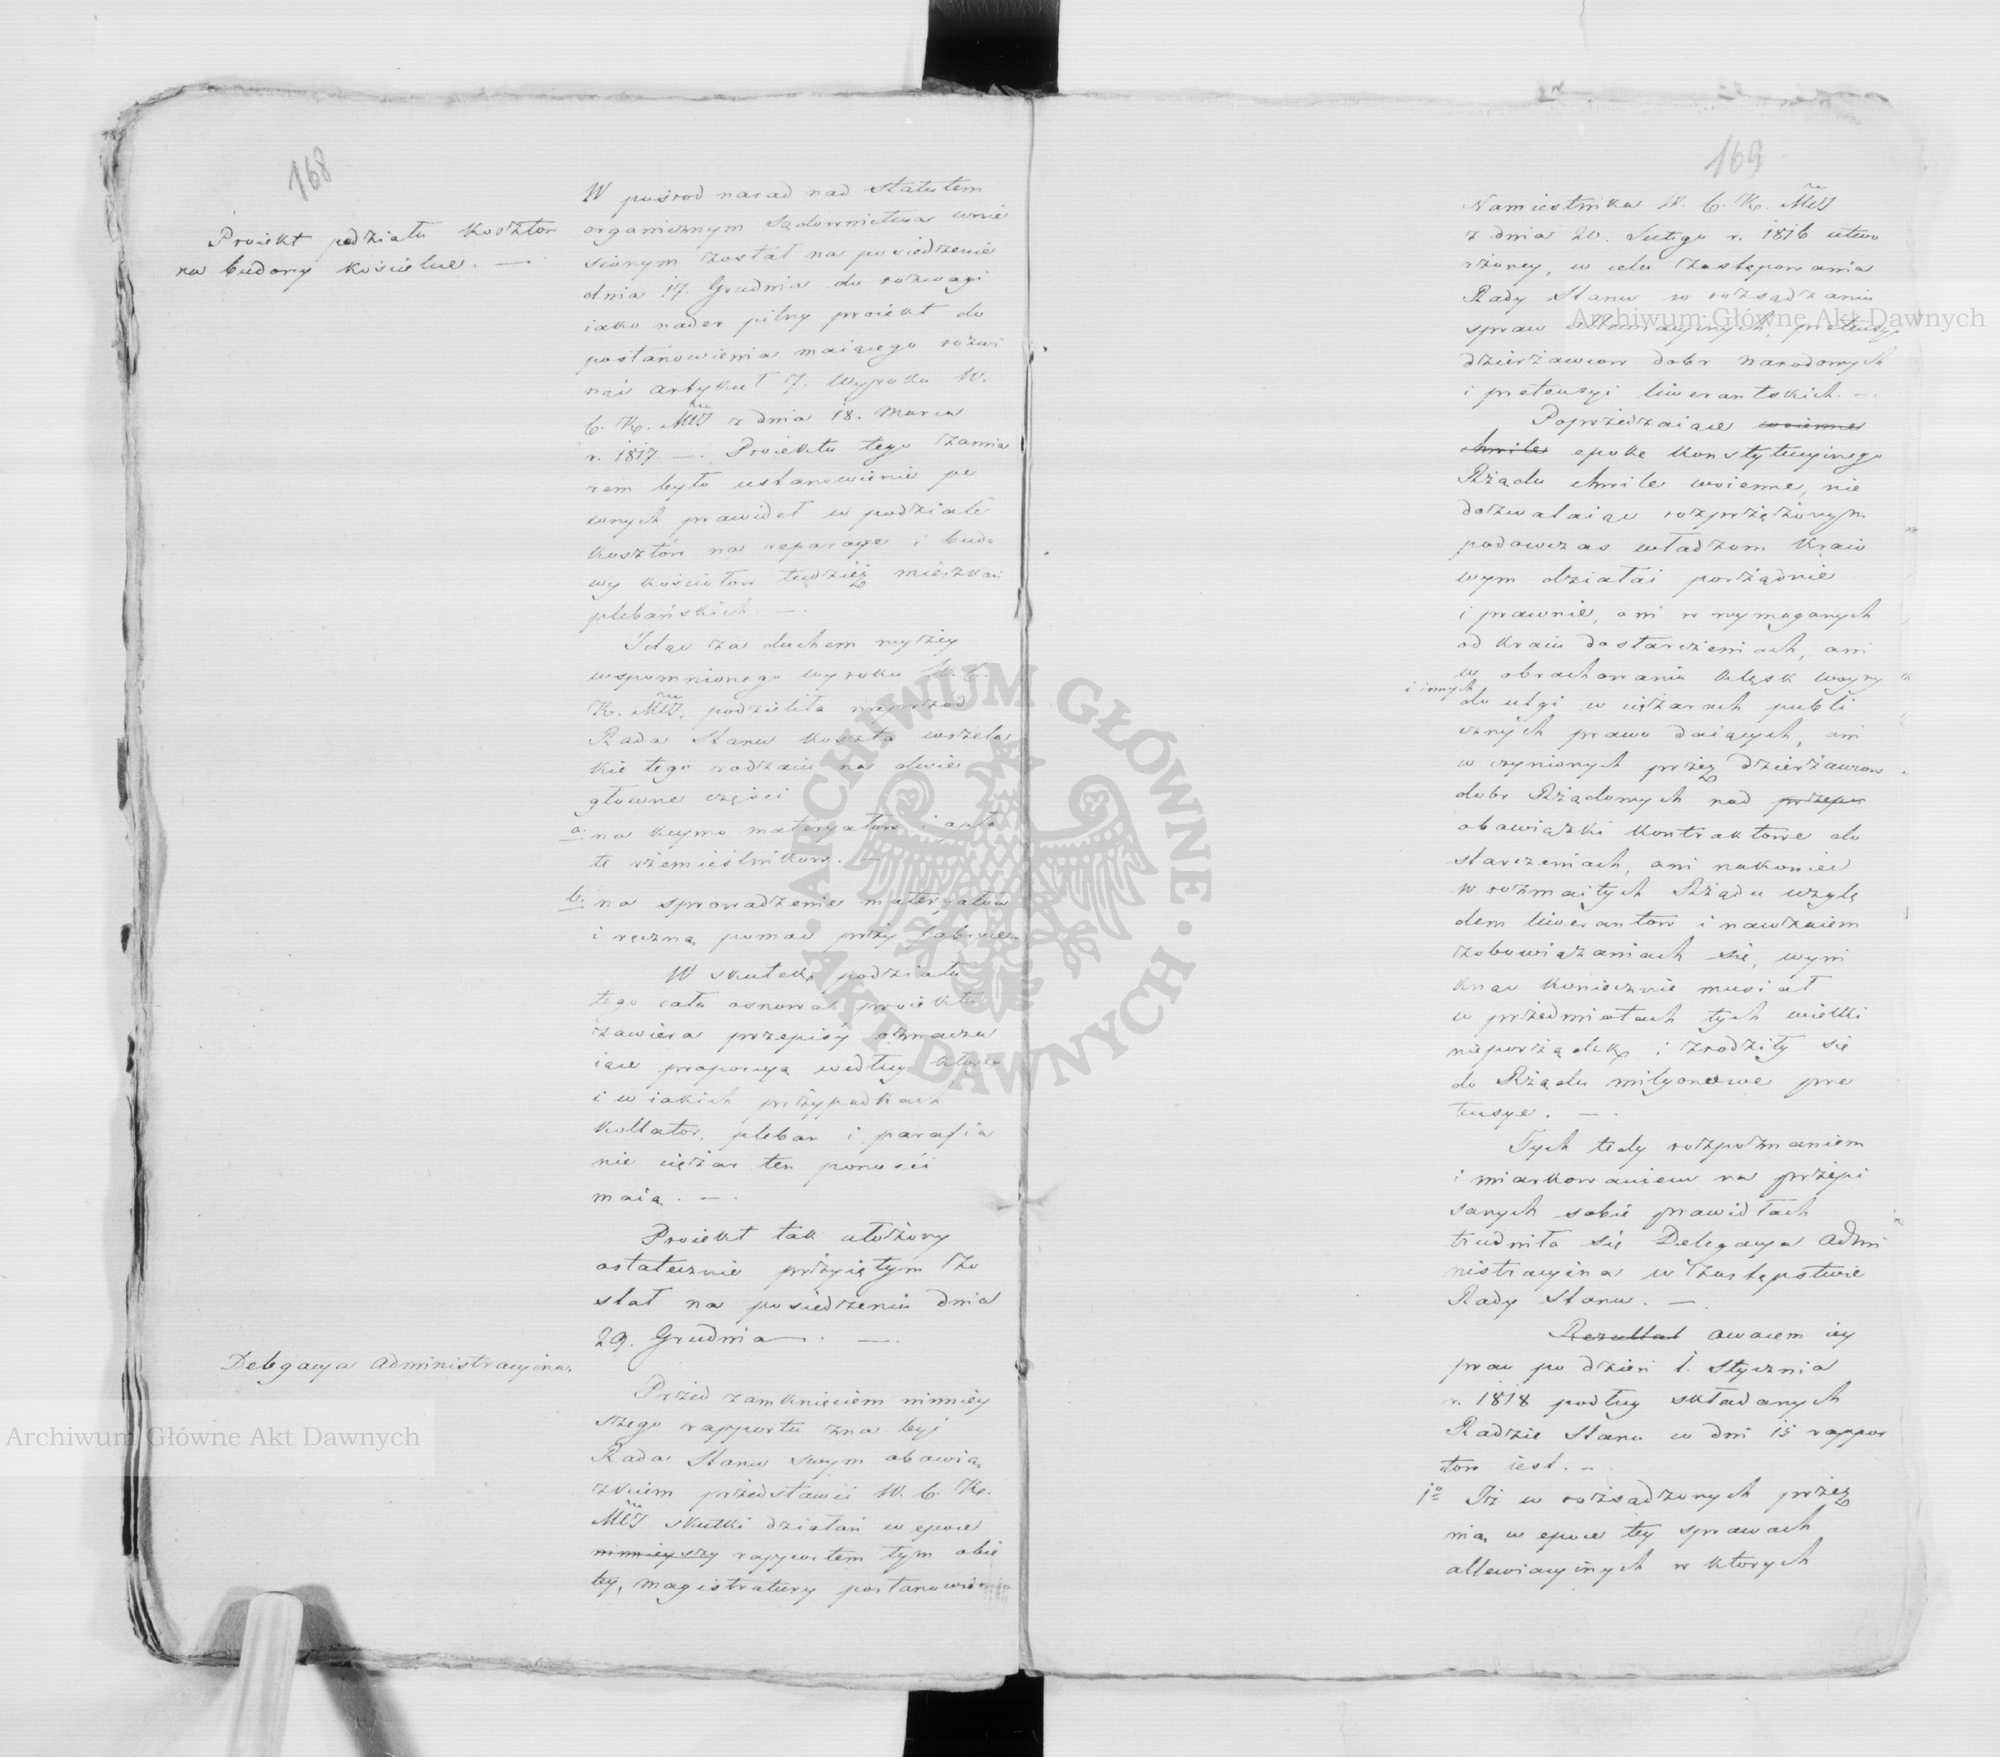 168
Proiekt podziału kosztow
na budowy kościelne. —
W pośrod narad nad Statutem
organicznym Sądownictwa wnie
sionym został na posiedzenie
dnia 17. Grudnia do rozwagi
iako nader pilny proiekt do
postanowienia maiącego rozwi
nąć artykuł 7. Wyroku W.
C. K. Mci z dnia 18. Marca
r. 1817. —. Proiektu tego zamia
rem było ustanowienie pe
wnych prawideł w podziale
kosztów na reparacye i budo
wy kościołow tudzież mieszkań
plebańskich. —.
Idąc za duchem wyżey
wspomnionego wyroku W. C.
K. Mci, podzieliła naprzod
Rada Stanu koszta wszela
kie tego rodzaiu na dwie
głowne części
a. na kupno materyałow i opła
tę rzemieślnikow. —
b. na sprowadzenie materyałów
i ręczną pomoc przy fabryce.
W skutek podziału
tego cała osnowa proiektu
zawiera przepisy oznacza
iące proporcyą według ktorey
i w iakich przypadkach
kollator, pleban i parafia
nie ciężar ten ponosić
maią. —.
Proiekt tak ułożony
ostatecznie przyiętym zo
stał na posiedzeniu dnia
29. Grudnia. —.
Delegacya administracyina.
Przed zamknięciem ninniey
szego rapportu zna byź
Rada Stanu swym obowią
zkiem przedstawić W. C. K.
Mci skutki działań w epoce
ninnieyszy rapportem tym obię
tey, magistratury postanowieniem
169
Namiestnika W. C. K. Mci
z dnia 20. Lutego r. 1816 utwo
rżoney, w celu zastępowania
Rady Stanu w rozsądzaniu
spraw allewiacyinych, pretensyi
dzierżawcow dobr Narodowych
i pretensyi liwerantskich. —.
Poprzedzaiące woienne
chwile epokę konstytucyinego
Rządu chwile woienne, nie
dozwalaiąc rozprzężonym
podowczas władzom kraio
wym działać porządnie
i prawnie, ani w wymaganych
od kraiu dostarczeniach, ani
w obrachowaniu klęsk woyny
i innych do ulgi w ciężarach publi
cznych prawo daiących, ani
w czynionych przez dzierżawcow
dobr Rządowych nad przepis
obowiązki kontraktowe do
starczeniach, ani nakoniec
w rozmaitych Rządu wzglę
dem liwerantow i nawzaiem
zobowiązaniach się, wyni
knąć koniecznie musiał
w przedmiotach tych wielki
nieporządek i zrodziły się
do Rządu milyonowe pre
tensye. —.
Tych tedy rozpoznaniem
i miarkowaniem na przepi
sanych sobie prawidłach
trudniła się Delegacya Admi
nistracyina w Zastępstwie
Rady Stanu. —.
Rezultat owocem iey
prac po dzień 1. Stycznia
r. 1818 podług składanych
Radzie Stanu co dni 15 rappor
tow iest. —.
1o Iż w rozsądzonych przez
nią w epoce tey sprawach
allewiacyinych w ktorych
Archiwum Główne Akt Dawnych
Archiwum Główne Akt Dawnych
ARCHIWUM GŁÓWNE · AKT DAWNYCH ·